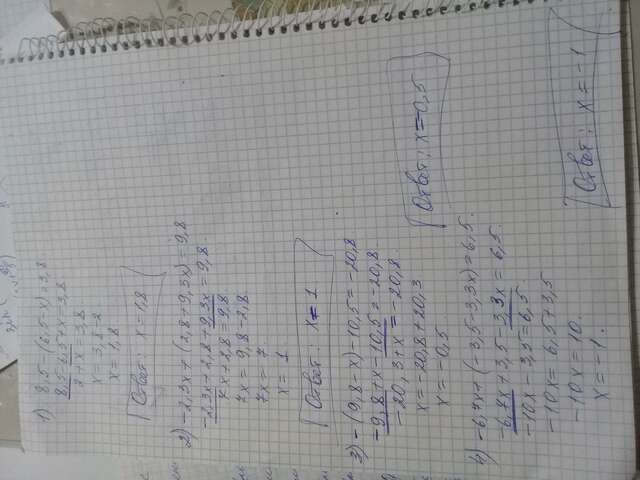 1) 8,5-(6,5-x)=3,8
8,5-6,5+x=3,8
2+x=3,8
x=3,8-2
x=1,8
Ответ: x=1,8
2) -2,3x+(2,8+9,3x)=9,8
-2,3x+2,8+9,3x=9,8
7x+2,8=9,8
7x=9,8-2,8
7x=7
x=1
Ответ: x=1
3) -(9,8-x)-10,5=-20,8
-9,8+x-10,5=-20,8
-20,3+x=-20,8
x=-20,8+20,3
x=-0,5
Ответ: x=0,5
4) -6,7x+(-3,5-3,3x)=6,5
-6,7x+3,5-3,3x=6,5
-10x-3,5=6,5
-10x=6,5+3,5
-10x=10
x=-1.
Ответ: x=-1